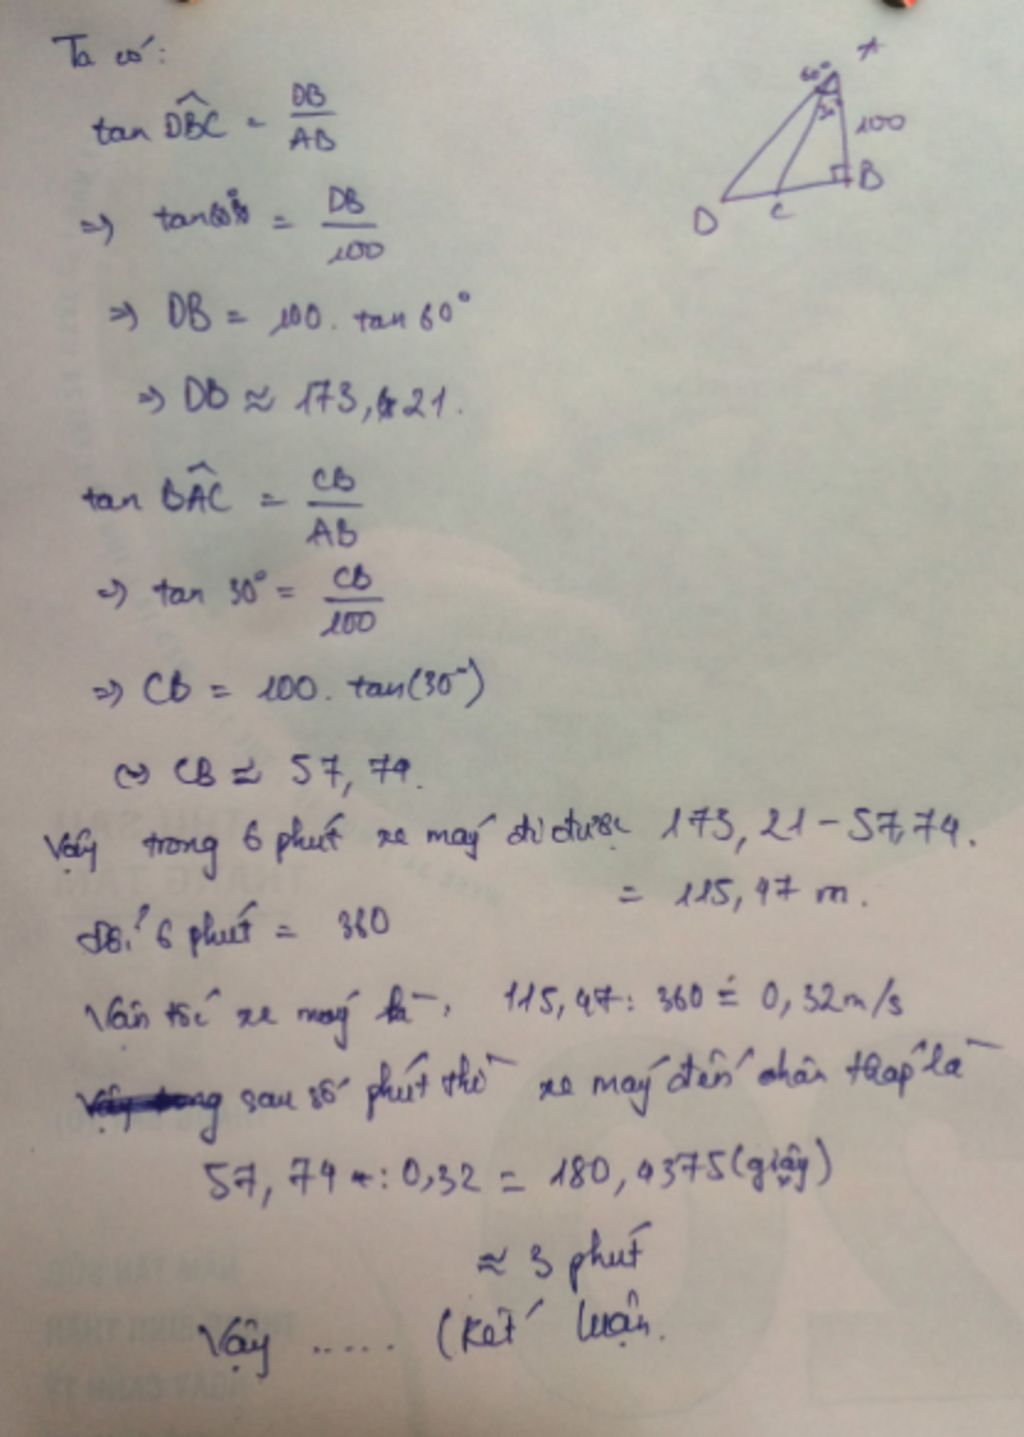 Ta có:
tan DBC = DB/AB
=> tan60° = DB/100
=> DB = 100 . tan 60°
=> DB ≈ 173,21.
tan BAC = CB/AB
=> tan 30° = CB/100
=> CB = 100. tan(30°)
=> CB ≈ 57,74.
Vậy trong 6 phút xe máy đi được 173,21 - 57,74.
= 115,47 m.
Đổi 6 phút = 360
Vận tốc xe máy là 115,47 : 360 = 0,32m/s
sau số phút thì xe máy đến chân tháp là
57,74 : 0,32 = 180,4375(giây)
≈ 3 phút
Vậy ..... (Kết luận.
A
60°
30
100
B
C
D